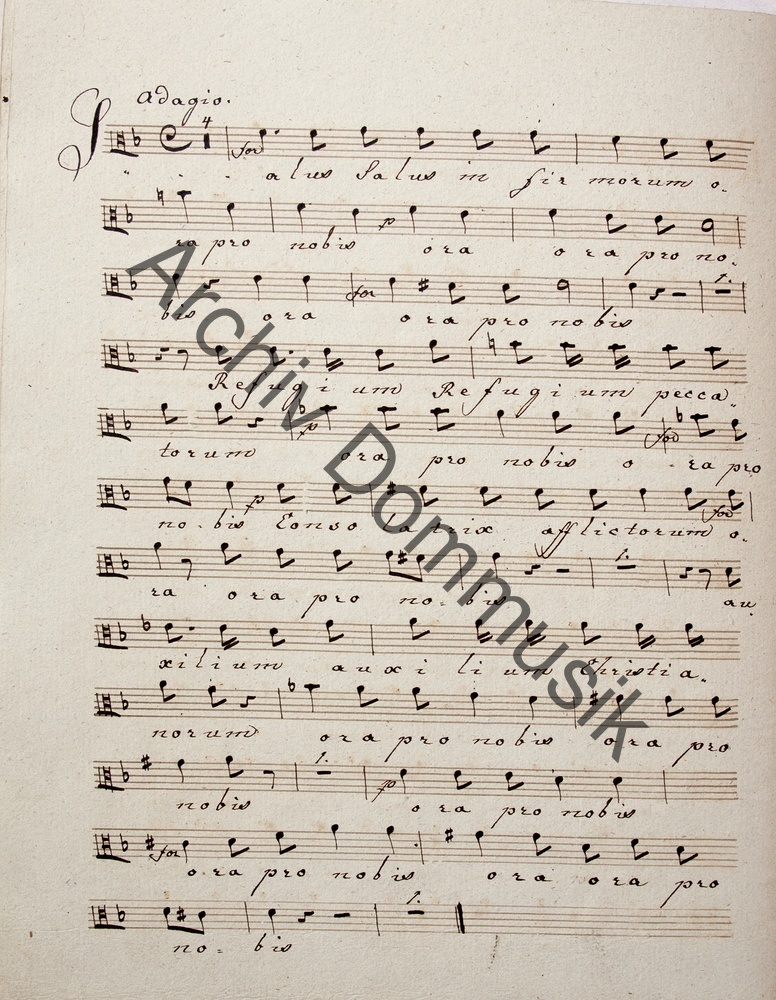 Adagio.
4
for
Salus Salus in fir morum o.
ra pro nobis ora ora pro no.
p
for
bis ora ora pro nobis
1.
Refugi um Refugi um pecca.
p
for
torum ora pro nobis o - ra pro
p
for
no - bis Conso la trix afflictorum o.
1.
ra ora pro no - bis au
xilium auxi li um Christi a.
norum ora pro nobis ora pro
1.
p
nobis ora pro nobis
for
ora pro nobis ora ora pro
1.
no - bis
Archiv Dommusik